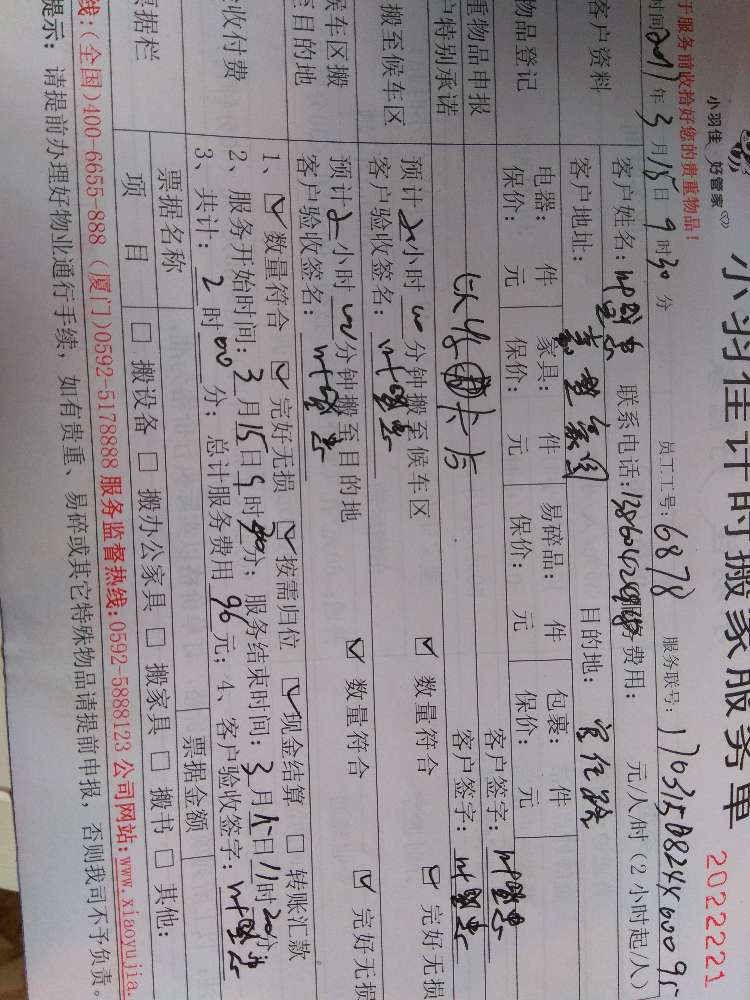 小羽佳 好管家
小羽佳计时搬家服务单
2022221
于服务前收拾好您的贵重物品!
员工工号: 6878 服务联号: 170315082440095
时间2017年3月15日9时30分
客户资料
客户姓名: 联系电话: 服务费用: 元/人/时(2小时起/人)
客户地址: 目的地:
物品登记
电器: 件 家具: 件 易碎品: 件 包裹: 件
保价: 元 保价: 元 保价: 元 保价: 元
重物品申报 客户签字:
户特别承诺 客户签字:
搬至候车区
预计2小时00分钟搬至候车区 ☑ 数量符合 ☑ 完好无损
客户验收签名:
候车区搬
至目的地
预计2小时00分钟搬至目的地 ☑ 数量符合 ☑ 完好无损
客户验收签名:
验收付费
1、☑ 数量符合 ☑ 完好无损 ☑ 按需归位 ☑ 现金结算 □ 转账汇款
2、服务开始时间:3月15日9时分; 服务结束时间:3月15日11时20分;
3、共计:2时00分; 总计服务费用90元; 4、客户验收签字:
票据栏
票据名称 票据金额
项 目 □ 搬设备 □ 搬办公家具 □ 搬家具 □ 搬书 □ 其他:
线:(全国)400-6655-888 (厦门)0592-5178888 服务监督热线:0592-5888123 公司网站:www.xiaoyujia.
提示: 请提前办理好物业通行手续, 如有贵重、易碎或其它特殊物品请提前申报, 否则我司不予负责。